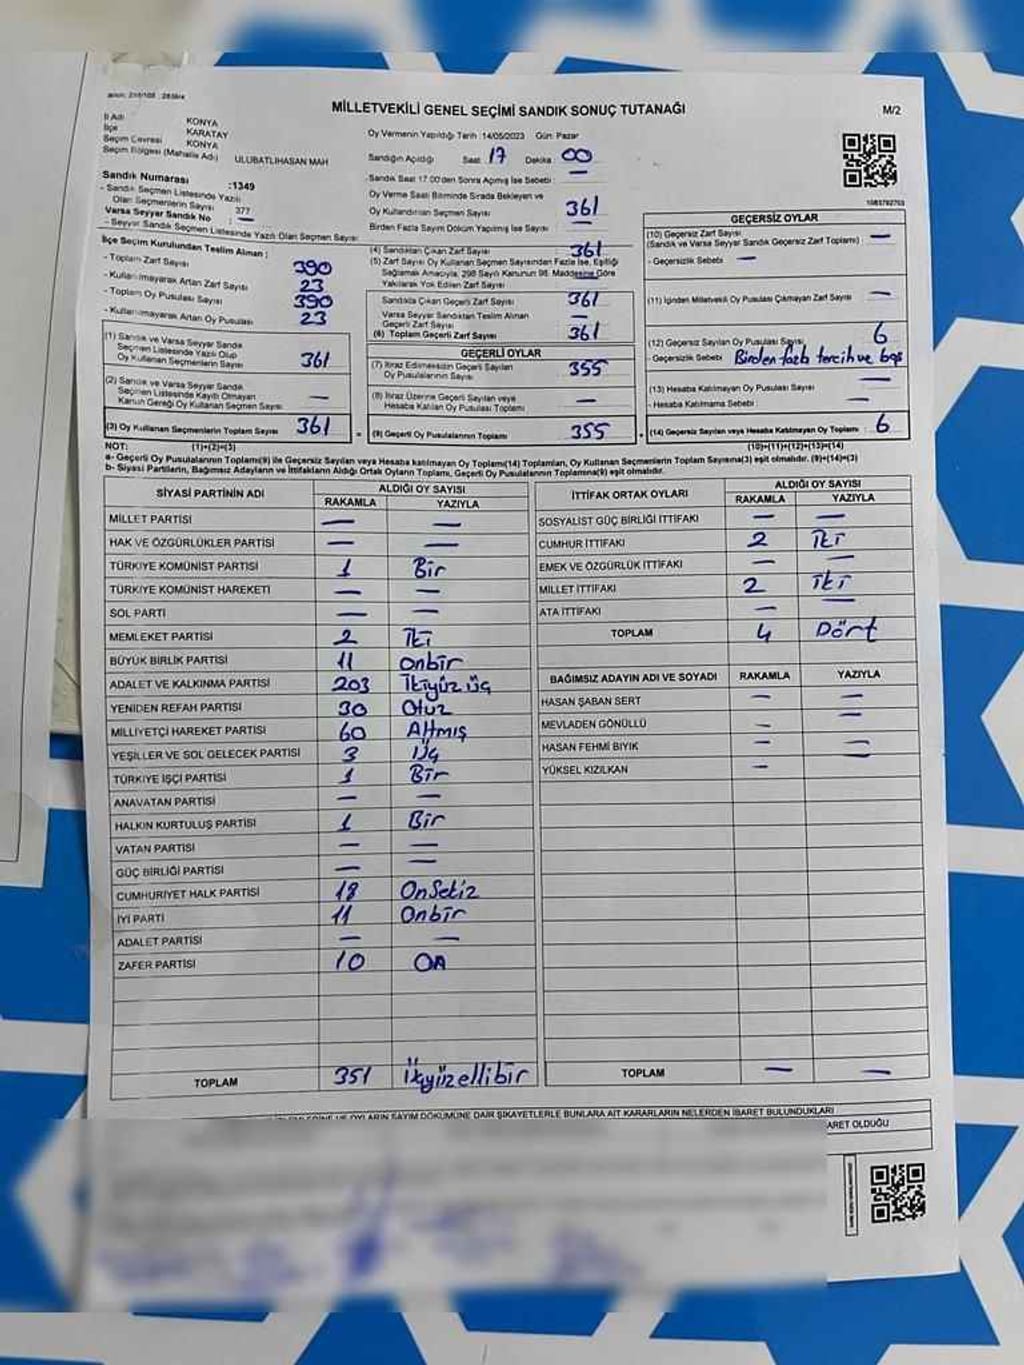 MİLLETVEKİLİ GENEL SEÇİMİ SANDIK SONUÇ TUTANAĞI
M/2
İl Adı KONYA
İlçe KARATAY
Seçim Çevresi KONYA
Seçim Bölgesi (Mahalle Adı) ULUBATLIHASAN MAH
Sandık Numarası :1349
- Sandık Seçmen Listesinde Yazılı
Olan Seçmenlerin Sayısı 377
Varsa Seyyar Sandık No : —
- Seyyar Sandık Seçmen Listesinde Yazılı Olan Seçmen Sayısı
Oy Vermenin Yapıldığı Tarih :14/05/2023 Gün: Pazar
Sandığın Açıldığı Saat 17 Dakika 00
Sandık Saat 17.00'den Sonra Açılmış İse Sebebi : —
Oy Verme Saati Bitiminde Sırada Bekleyen ve
Oy Kullandırılan Seçmen Sayısı 361
Birden Fazla Sayım Döküm Yapılmış İse Sayısı —
İlçe Seçim Kurulundan Teslim Alınan ;
- Toplam Zarf Sayısı 390
- Kullanılmayarak Artan Zarf Sayısı 23
- Toplam Oy Pusulası Sayısı 390
- Kullanılmayarak Artan Oy Pusulası 23
(1) Sandık ve Varsa Seyyar Sandık
Seçmen Listesinde Yazılı Olup
Oy Kullanan Seçmenlerin Sayısı 361
(2) Sandık ve Varsa Seyyar Sandık
Seçmen Listesinde Kayıtlı Olmayan
Kanun Gereği Oy Kullanan Seçmen Sayısı —
(3) Oy Kullanan Seçmenlerin Toplam Sayısı 361
(1)+(2)=(3)
(4) Sandıktan Çıkan Zarf Sayısı 361
(5) Zarf Sayısı Oy Kullanan Seçmen Sayısından Fazla İse, Eşitliği
Sağlamak Amacıyla, 298 Sayılı Kanunun 98. Maddesine Göre
Yakılarak Yok Edilen Zarf Sayısı —
Sandıkta Çıkan Geçerli Zarf Sayısı 361
Varsa Seyyar Sandıktan Teslim Alınan
Geçerli Zarf Sayısı —
(6) Toplam Geçerli Zarf Sayısı 361
GEÇERLİ OYLAR
(7) İtiraz Edilmeksizin Geçerli Sayılan
Oy Pusulalarının Sayısı 355
(8) İtiraz Üzerine Geçerli Sayılan veya
Hesaba Katılan Oy Pusulası Toplamı —
= (9) Geçerli Oy Pusulalarının Toplamı 355
GEÇERSİZ OYLAR
(10) Geçersiz Zarf Sayısı —
(Sandık ve Varsa Seyyar Sandık Geçersiz Zarf Toplamı)
- Geçersizlik Sebebi —
(11) İçinden Milletvekili Oy Pusulası Çıkmayan Zarf Sayısı —
(12) Geçersiz Sayılan Oy Pusulası Sayısı 6
- Geçersizlik Sebebi Birden fazla tercih ve boş
(13) Hesaba Katılmayan Oy Pusulası Sayısı —
- Hesaba Katılmama Sebebi : —
+ (14) Geçersiz Sayılan veya Hesaba Katılmayan Oy Toplamı : 6
(10)+(11)+(12)+(13)=(14)
NOT:
a- Geçerli Oy Pusulasının Toplamı(9) ile Geçersiz Sayılan veya Hesaba katılmayan Oy Toplamı(14) Toplamları, Oy Kullanan Seçmenlerin Toplam Sayısına(3) eşit olmalıdır. (9)+(14)=(3)
b- Siyasi Partilerin, Bağımsız Adayların ve İttifakların Aldığı Ortak Oyların Toplamı, Geçerli Oy Pusulasının Toplamına(9) eşit olmalıdır.
SİYASİ PARTİNİN ADI ALDIĞI OY SAYISI
RAKAMLA YAZIYLA
MİLLET PARTİSİ — —
HAK VE ÖZGÜRLÜKLER PARTİSİ — —
TÜRKİYE KOMÜNİST PARTİSİ 1 Bir
TÜRKİYE KOMÜNİST HAREKETİ — —
SOL PARTİ — —
MEMLEKET PARTİSİ 2 İki
BÜYÜK BİRLİK PARTİSİ 11 Onbir
ADALET VE KALKINMA PARTİSİ 203 İkiyüz üç
YENİDEN REFAH PARTİSİ 30 Otuz
MİLLİYETÇİ HAREKET PARTİSİ 60 Altmış
YEŞİLLER VE SOL GELECEK PARTİSİ 3 Üç
TÜRKİYE İŞÇİ PARTİSİ 1 Bir
ANAVATAN PARTİSİ — —
HALKIN KURTULUŞ PARTİSİ 1 Bir
VATAN PARTİSİ — —
GÜÇ BİRLİĞİ PARTİSİ — —
CUMHURİYET HALK PARTİSİ 18 OnSekiz
İYİ PARTİ 11 Onbir
ADALET PARTİSİ — —
ZAFER PARTİSİ 10 On
TOPLAM 351 İkiyüzellibir
İTTİFAK ORTAK OYLARI ALDIĞI OY SAYISI
RAKAMLA YAZIYLA
SOSYALİST GÜÇ BİRLİĞİ İTTİFAKI — —
CUMHUR İTTİFAKI 2 İki
EMEK VE ÖZGÜRLÜK İTTİFAKI — —
MİLLET İTTİFAKI 2 İki
ATA İTTİFAKI — —
TOPLAM 4 Dört
BAĞIMSIZ ADAYIN ADI VE SOYADI RAKAMLA YAZIYLA
HASAN ŞABAN SERT — —
MEVLADEN GÖNÜLLÜ — —
HASAN FEHMİ BIYIK — —
YÜKSEL KIZILKAN — —
TOPLAM — —
OYLARIN SAYIM DÖKÜMÜNE DAİR ŞİKAYETLERLE BUNLARA AİT KARARLARIN NELERDEN İBARET BULUNDUKLARI
ARET OLDUĞU